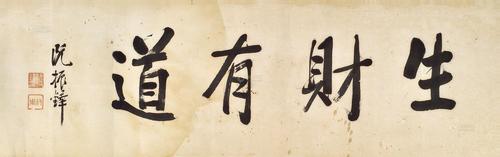 生財有道
阮振鐸